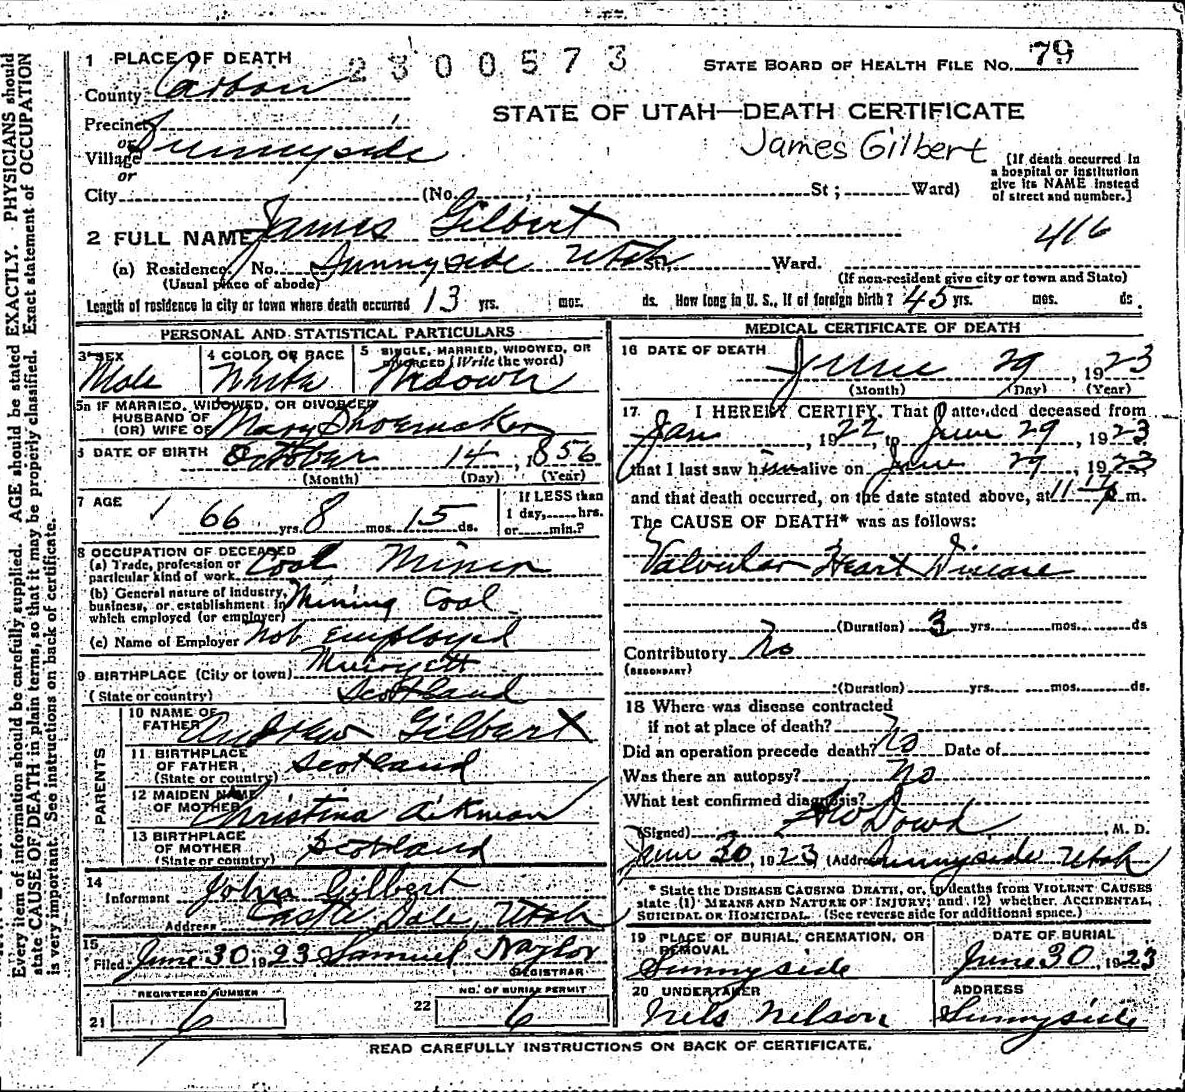 1 PLACE OF DEATH
2300573
STATE BOARD OF HEALTH FILE No. 79
County Carbon
STATE OF UTAH—DEATH CERTIFICATE
Precinct
or
Village Sunnyside
or
James Gilbert
(If death occurred in a hospital or institution give its NAME instead of street and number.]
City (No. St; Ward)
2 FULL NAME James Gilbert
416
(a) Residence. No. Sunnyside Utah St, Ward.
(Usual place of abode)
(If non-resident give city or town and State)
Length of residence in city or town where death occurred 13 yrs. mos. ds. How long in U. S., if of foreign birth? 45 yrs. mos. ds.
PERSONAL AND STATISTICAL PARTICULARS
3 SEX
Male
4 COLOR OR RACE
White
5 SINGLE, MARRIED, WIDOWED, OR
DIVORCED (Write the word)
Widower
5a IF MARRIED, WIDOWED, OR DIVORCED
HUSBAND OF
(OR) WIFE OF Mary Shoemaker
6 DATE OF BIRTH October 14, 1856
(Month) (Day) (Year)
7 AGE
66 yrs. 8 mos. 15 ds.
If LESS than
1 day, hrs.
or min.?
8 OCCUPATION OF DECEASED
(a) Trade, profession or
particular kind of work Coal Miner
(b) General nature of industry,
business, or establishment in
which employed (or employer) Mining Coal
(c) Name of Employer not employed
9 BIRTHPLACE (City or town)
(State or country) Scotland
PARENTS
10 NAME OF
FATHER Andrew Gilbert
11 BIRTHPLACE
OF FATHER
(State or country) Scotland
12 MAIDEN NAME
OF MOTHER Christina Aikman
13 BIRTHPLACE
OF MOTHER
(State or country) Scotland
14
Informant John Gilbert
Address Castle Dale, Utah
15
Filed June 30 1923 Samuel Naylor
REGISTRAR
REGISTERED NUMBER
21 6
NO. OF BURIAL PERMIT
22 6
MEDICAL CERTIFICATE OF DEATH
16 DATE OF DEATH
June 29, 1923
(Month) (Day) (Year)
17. I HEREBY CERTIFY, That I attended deceased from
Jan, 1922, to June 29, 1923
that I last saw him alive on June 29, 1923
and that death occurred, on the date stated above, at 11 17 p m.
The CAUSE OF DEATH* was as follows:
Valvular Heart Disease
(Duration) 3 yrs. mos. ds
Contributory No
(SECONDARY)
(Duration) yrs. mos. ds.
18 Where was disease contracted
if not at place of death?
Did an operation precede death? No Date of
Was there an autopsy? No
What test confirmed diagnosis?
(Signed) Dowd M. D.
June 30, 1923 (Address) Sunnyside Utah
* State the DISEASE CAUSING DEATH, or, in deaths from VIOLENT CAUSES
state (1) MEANS AND NATURE OF INJURY; and (2) whether ACCIDENTAL,
SUICIDAL OR HOMICIDAL. (See reverse side for additional space.)
19 PLACE OF BURIAL, CREMATION, OR
REMOVAL
Sunnyside
DATE OF BURIAL
June 30, 1923
20 UNDERTAKER
Nels Nelson
ADDRESS
Sunnyside
READ CAREFULLY INSTRUCTIONS ON BACK OF CERTIFICATE.
Every item of information should be carefully supplied. AGE should be stated EXACTLY. PHYSICIANS should
state CAUSE OF DEATH in plain terms, so that it may be properly classified. Exact statement of OCCUPATION
is very important. See instructions on back of certificate.